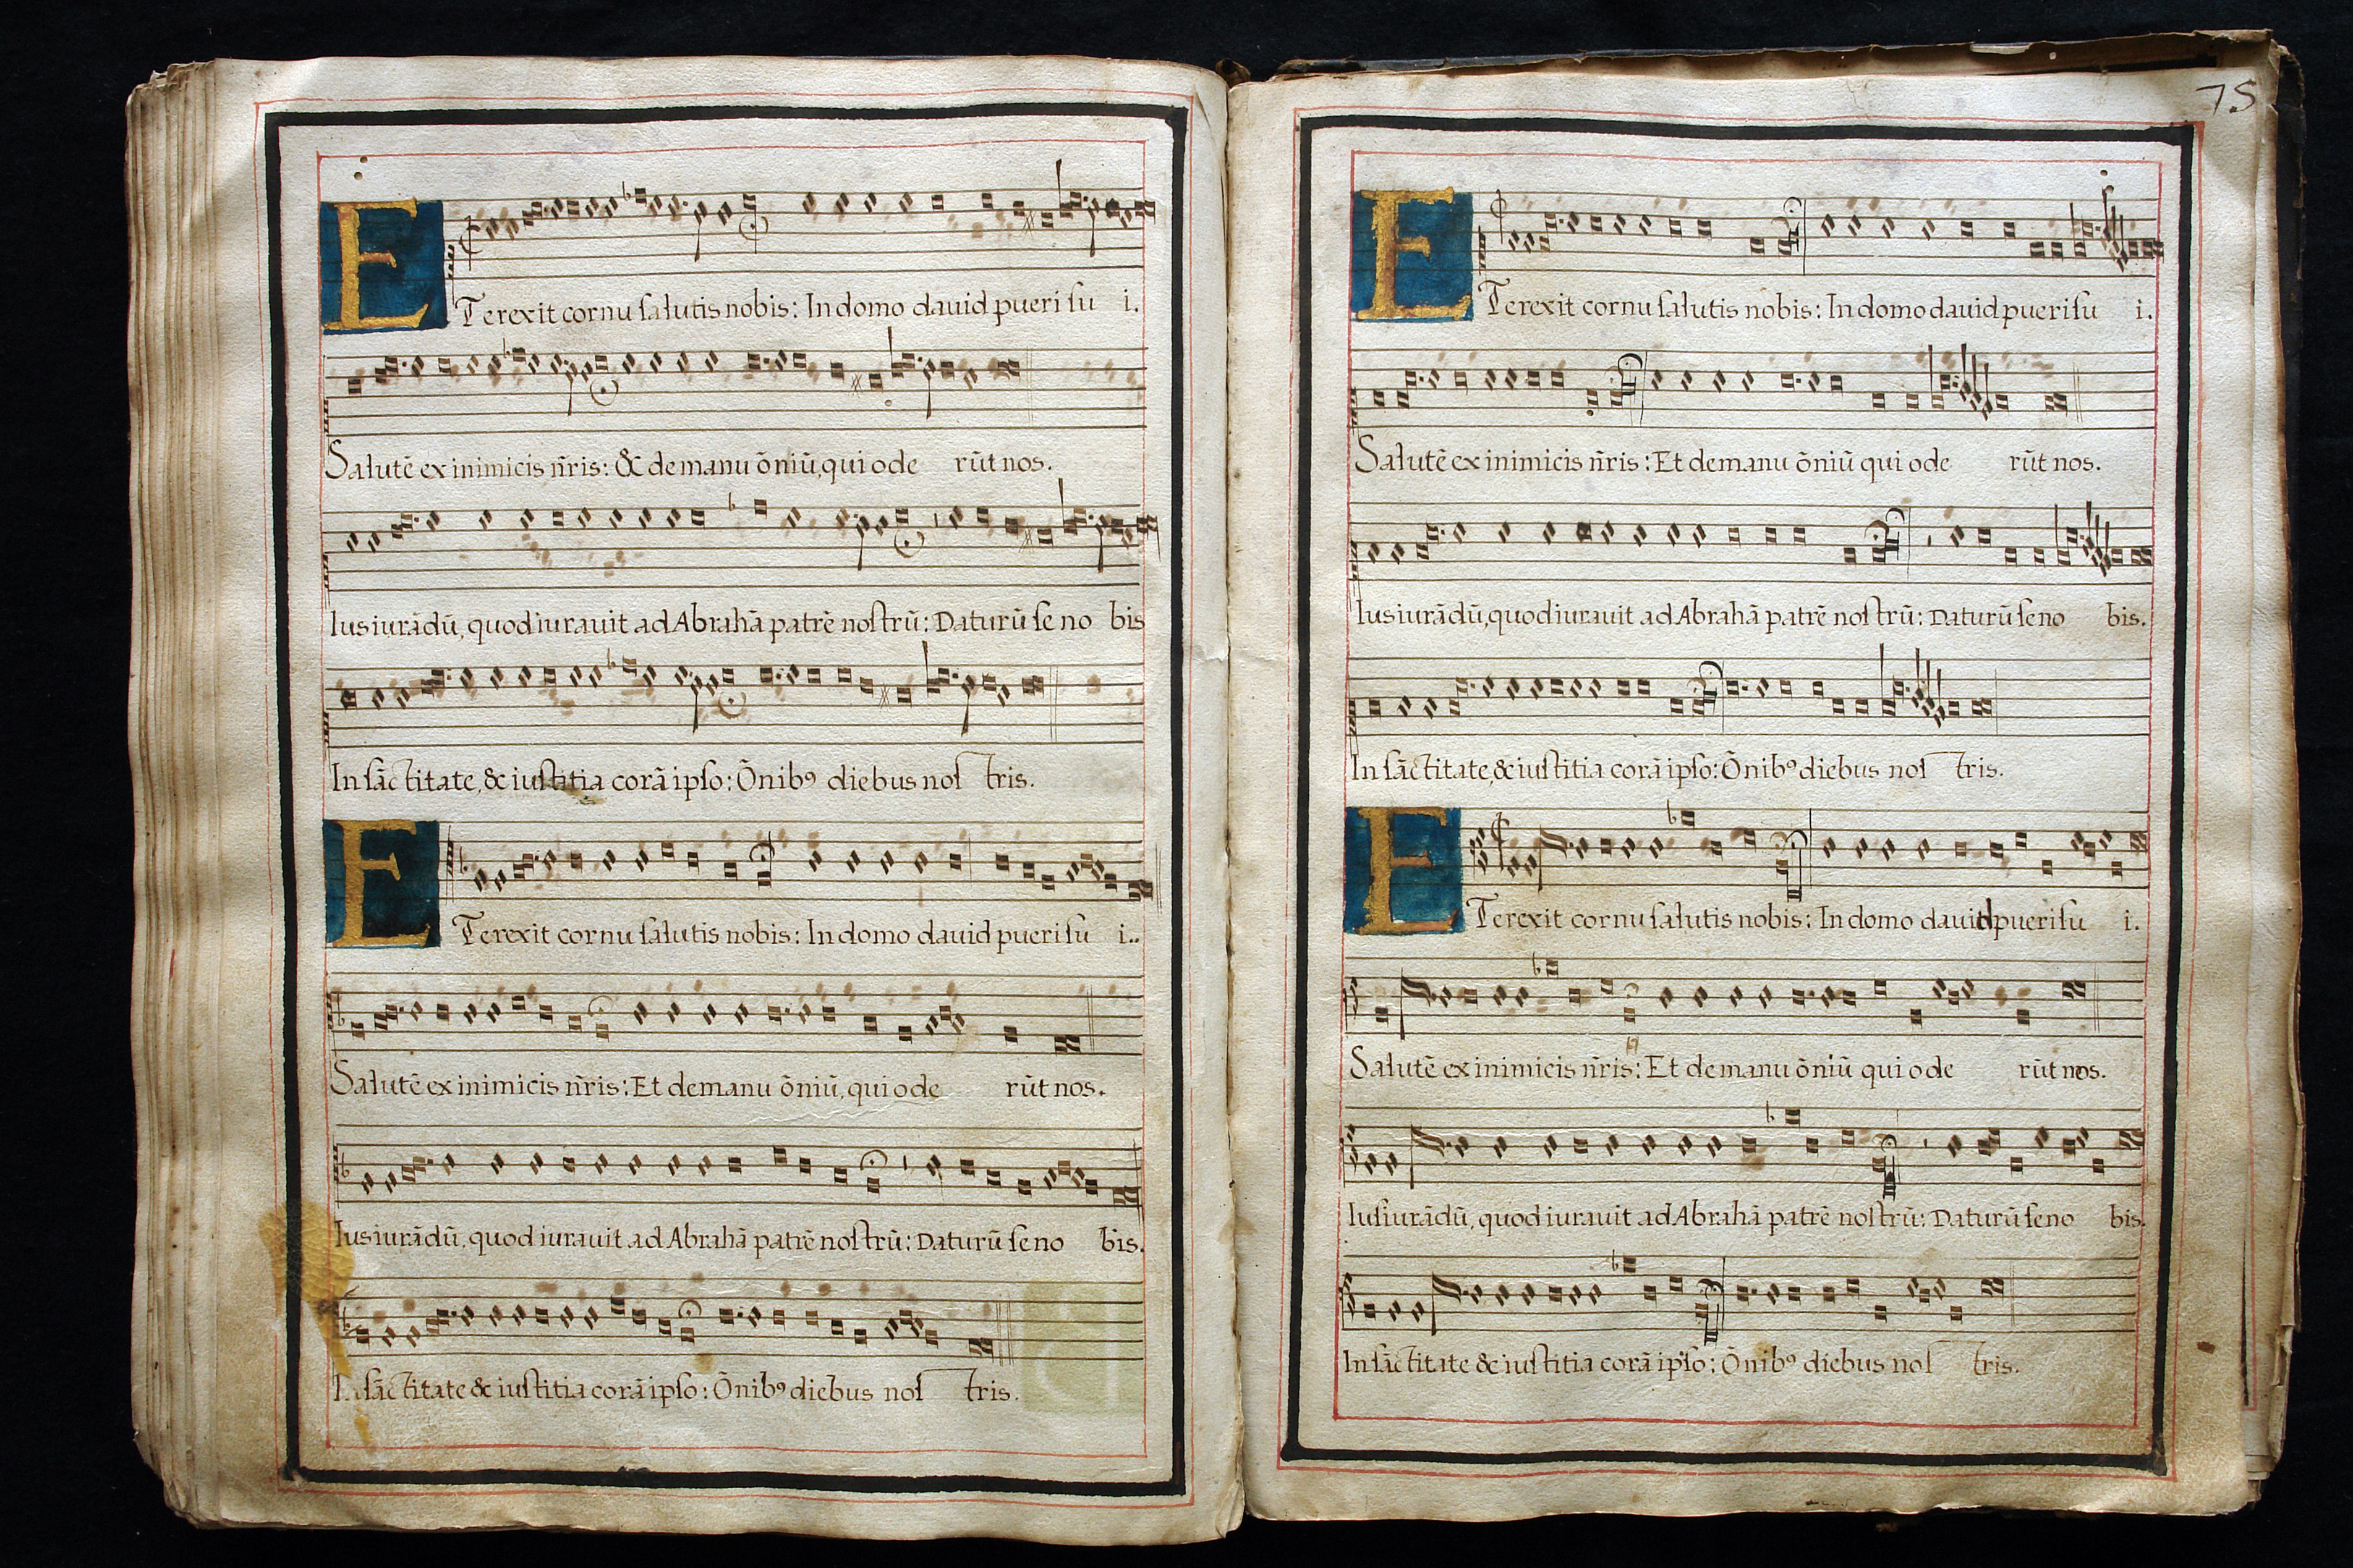 ETerexit cornu ſalutis nobis: In domo dauid pueri ſu i.
Salutē ex inimicis ñris: & de manu õniū, qui ode rūt nos.
Iusiurādū, quod iurauit ad Abrahā patrē noſtrū: Daturū ſe no bis
In ſāctitate, & iuſtitia corā ipſo: Õnibꝰ diebus noſ tris.
ETerexit cornu ſalutis nobis: In domo dauid pueri ſu i..
Salutē ex inimicis ñris: Et de manu õniū, qui ode rūt nos.
Iusiurādū, quod iurauit ad Abrahā patrē noſtrū: Daturū ſe no bis.
In ſāctitate & iuſtitia corā ipſo: Õnibꝰ diebus noſ tris.
75
ETerexit cornu ſalutis nobis: In domo dauid pueri ſu i.
Salutē ex inimicis ñris: Et de manu õniū qui ode rūt nos.
Iusiurādū, quod iurauit ad Abrahā patrē noſtrū: Daturū ſe no bis.
In ſāctitate, & iuſtitia corā ipſo: Õnibꝰ diebus noſ tris.
ETerexit cornu ſalutis nobis: In domo dauid pueri ſu i.
Salutē ex inimicis ñris: Et de manu õniū qui ode rūt nos.
Iuſiurādū, quod iurauit ad Abrahā patrē noſtrū: Daturū ſe no bis.
In ſāctitate & iuſtitia corā ipſo: Õnibꝰ diebus noſ tris.